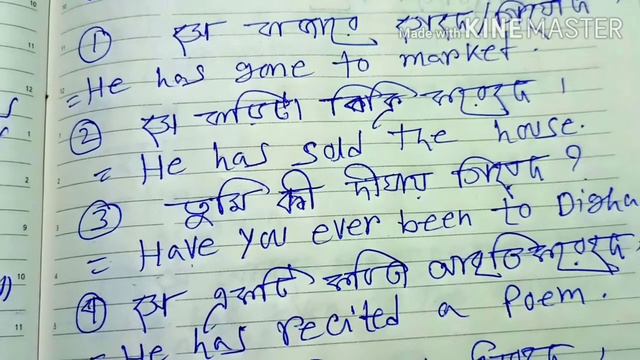 ① সে বাজারে গেছে/গিয়েছে
Made with KINEMASTER
= He has gone to market.
② সে বাড়িটা বিক্রি করেছে।
= He has sold the house.
③ তুমি কী দীঘায় গিয়েছ?
= Have you ever been to Digha
④ সে একটি কবিতা আবৃত্তি করেছে
= He has recited a poem.